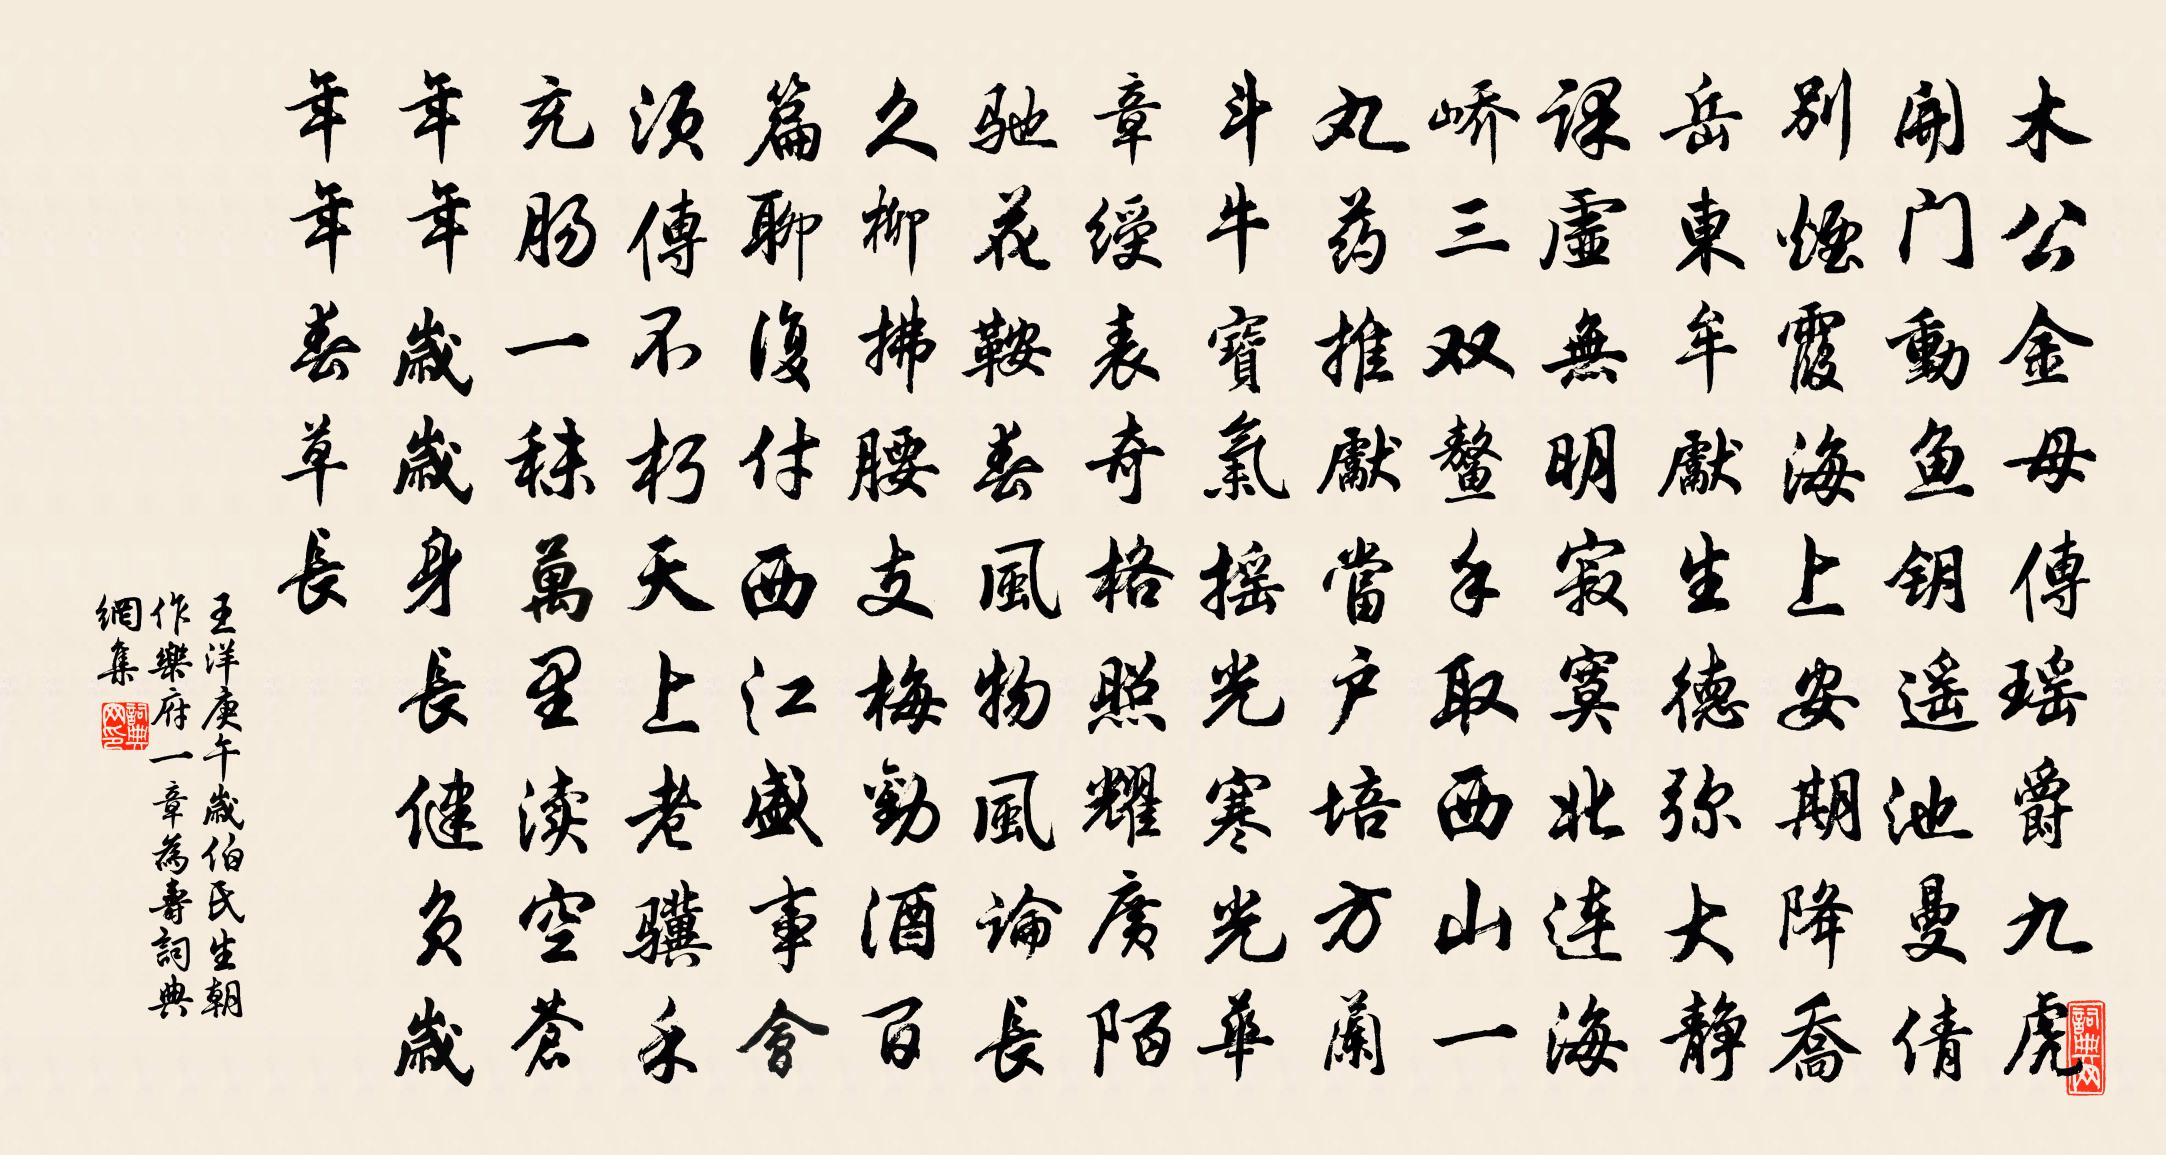 木公金母傳瑶爵九虎
開门動魚钥遥池曼倩
别煙霞海上安期降喬
岳東牟獻生德弥大静
課虛無明寂寞北连海
峤三双鳌手取西山一
丸药推獻當户培方蘭
斗牛寶氣摇光寒光華
章綬表奇格照耀廣陌
馳花鞍春風物風論長
久柳拂腰支梅勸酒百
篇聊復付西江盛事會
須傳不朽天上老驥禾
充腸一秣萬里渎空蒼
年年歲歲身長健負歲
年年春草長
王洋庚午歲伯氏生朝
作樂府一章為壽詞典
網集
詞典网
詞典网印